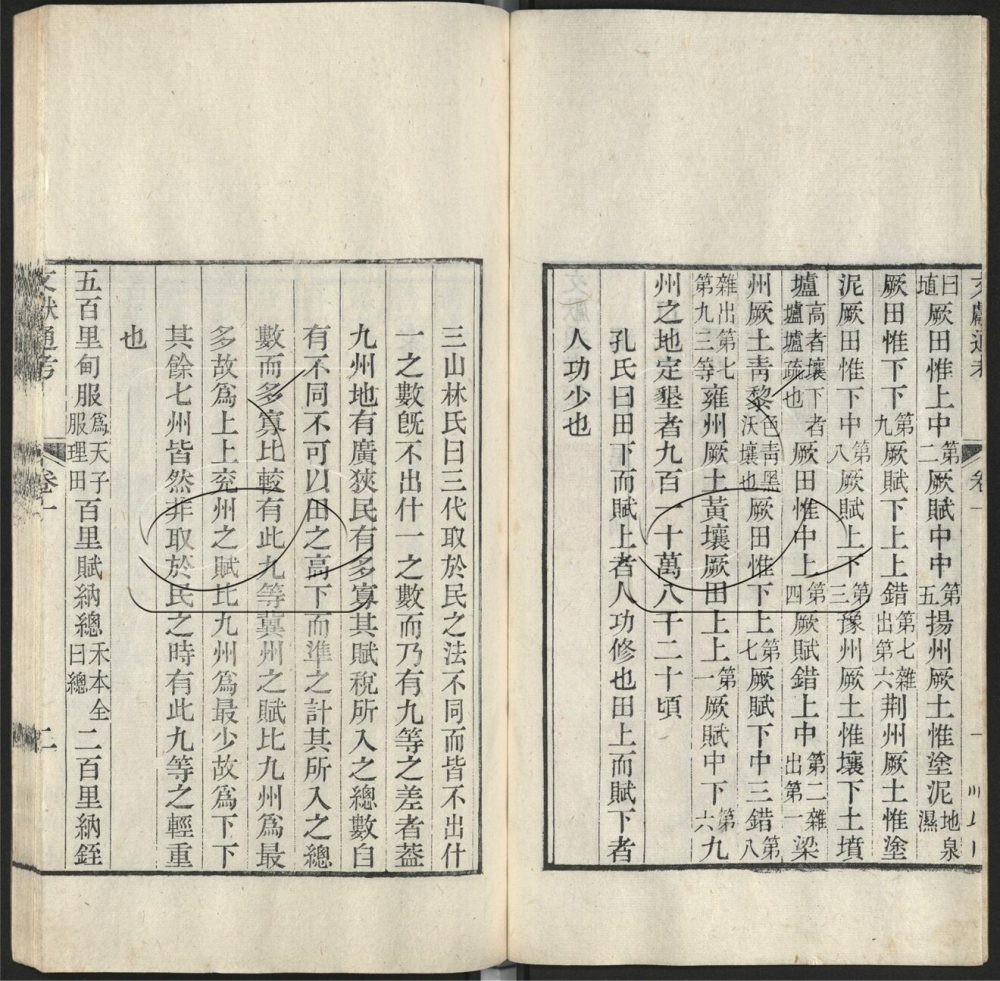 曰埴厥田惟上中第二厥賦中中第五揚州厥土惟塗泥地泉濕
厥田惟下下第九厥賦下上上錯第七雜出第六荆州厥土惟塗
泥厥田惟下中第八厥賦上下第三豫州厥土惟壤下土墳
壚高者壤下者壚壚疏也厥田惟中上第四厥賦錯上中第二雜出第一梁
州厥土靑黎色靑黑沃壤也厥田惟下上第七厥賦下中三錯第八
雜出第七第九三等雍州厥土黃壤厥田上上第一厥賦中下第六九
州之地定墾者九百一十萬八千二十頃
孔氏曰田下而賦上者人功修也田上而賦下者
人功少也
三山林氏曰三代取於民之法不同而皆不出什
一之數旣不出什一之數而乃有九等之差者葢
九州地有廣狹民有多寡其賦稅所入之總數自
有不同不可以田之高下而準之計其所入之總
數而多寡比較有此九等冀州之賦比九州爲最
多故爲上上兖州之賦比九州爲最少故爲下下
其餘七州皆然非取於民之時有此九等之輕重
也
五百里甸服爲天子服理田百里賦納總禾本全曰總二百里納銍
文獻通考
卷一
二